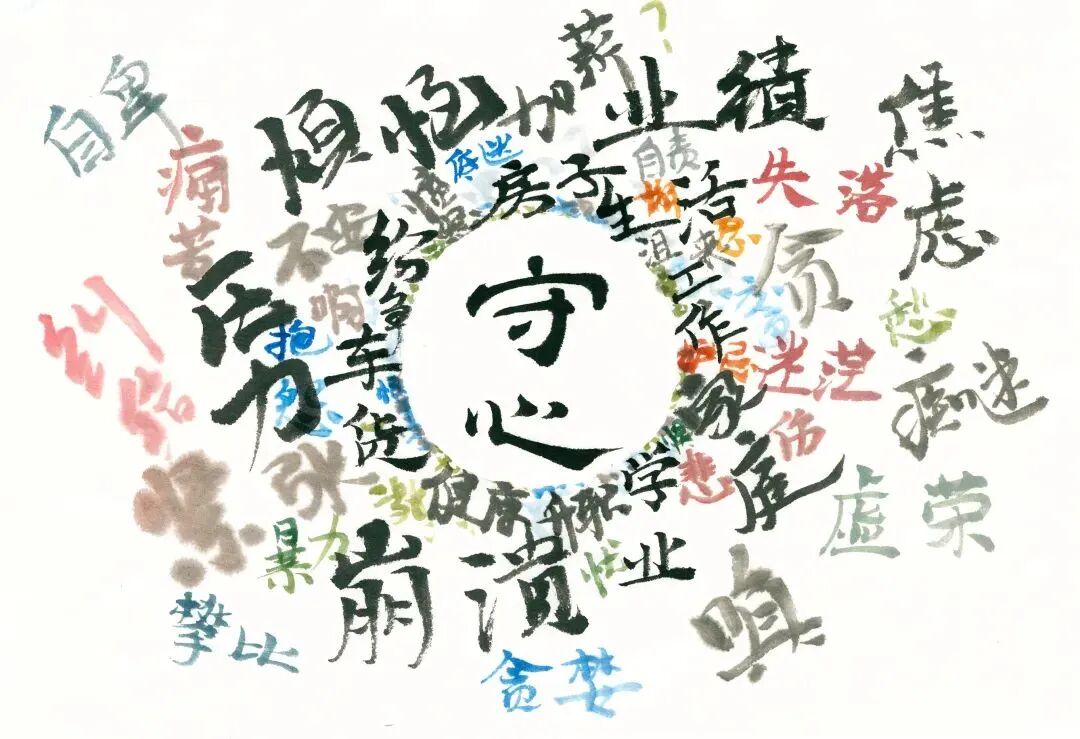 守心
自卑
痛苦
烦恼
加薪?
业绩
焦虑
低迷
房子
自责
生活
失落
不安
纷争
沮丧
工作
贪
压力
抱怨
车贷
迷茫
愁
痴迷
纠结
家庭
悲伤
紧张
健康
升职
学业
虚荣
暴力
崩溃
忧
嗔
攀比
贪婪